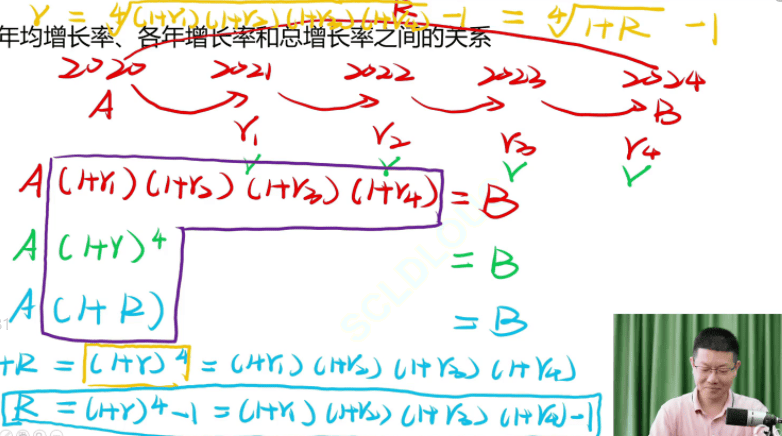 r = ⁴√(1+r₁)(1+r₂)(1+r₃)(1+r₄) -1 = ⁴√1+R -1
R
年均增长率、各年增长率和总增长率之间的关系
2020 2021 2022 2023 2024
A B
r₁ r₂ r₃ r₄
A (1+r₁)(1+r₂)(1+r₃)(1+r₄) = B
A (1+r)⁴ = B
A (1+R) = B
+R = (1+r)⁴ = (1+r₁)(1+r₂)(1+r₃)(1+r₄)
R = (1+r)⁴-1 = (1+r₁)(1+r₂)(1+r₃)(1+r₄)-1